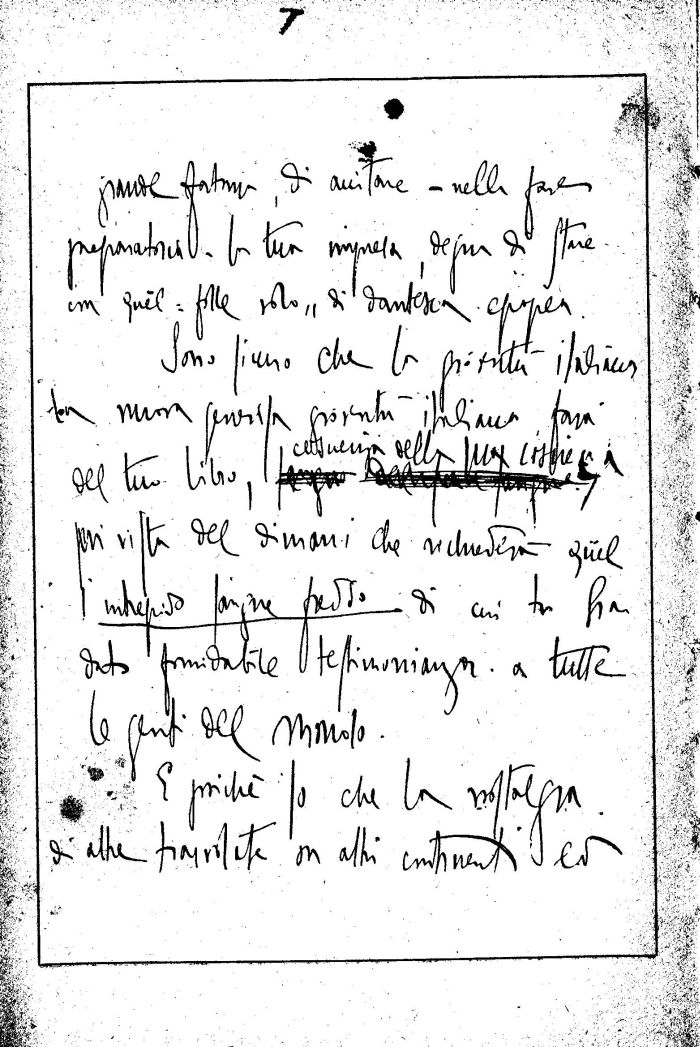 7
grande fortuna, di aiutare - nella fase
preparatoria - la tua impresa, degna di stare
in quel "folle volo" di dantesca epopea.
Sono sicuro che la gioventù italiana
la nuova generosa gioventù italiana farà
del tuo libro,
per vista del domani che richiederà quel
intrepido sangue freddo di cui tu hai
dato formidabile testimonianza a tutte
le genti del mondo.
E poiché so che la nostalgia
di altre trasvolate on altri continenti ed